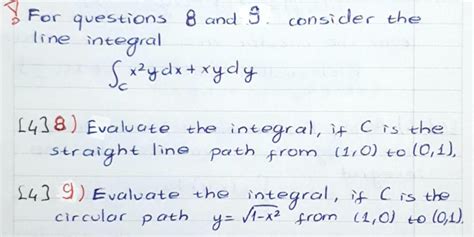 For questions 8 and 9. consider the
line integral
∫_C x²y dx + xy dy
[4] 8) Evaluate the integral, if C is the
straight line path from (1,0) to (0,1).
[4] 9) Evaluate the integral, if C is the
circular path y = √1-x² from (1,0) to (0,1).